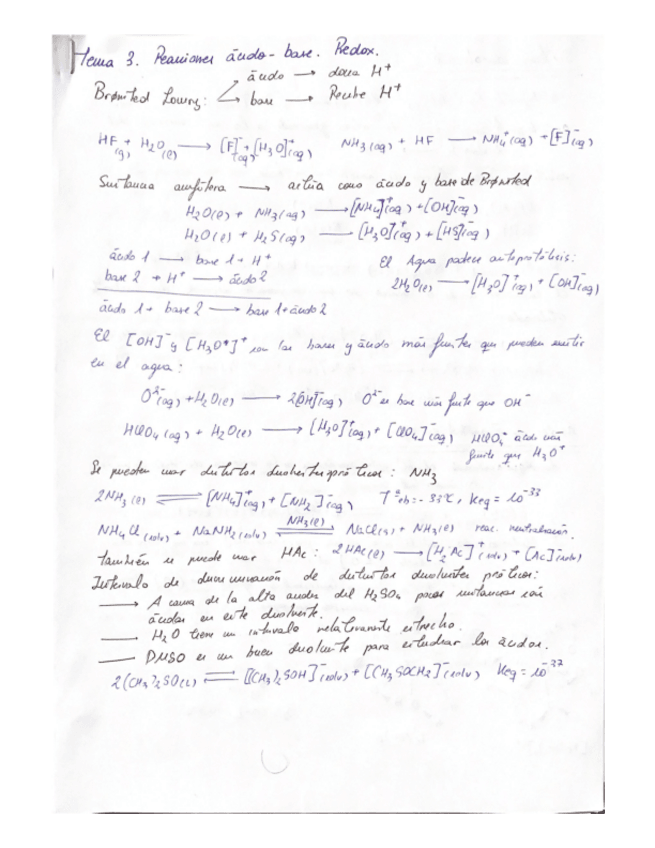 Tema 3. Reacciones ácido-base. Redox.
Brønsted Lowry: ácido → dona H⁺
base → Recibe H⁺
HF(g) + H₂O(l) → [F]⁻(aq) + [H₃O]⁺(aq) NH₃(aq) + HF → NH₄⁺(aq) + [F]⁻(aq)
Sustancia anfótera → actúa como ácido y base de Brønsted
H₂O(l) + NH₃(aq) → [NH₄]⁺(aq) + [OH]⁻(aq)
H₂O(l) + H₂S(aq) → [H₃O]⁺(aq) + [HS]⁻(aq)
ácido 1 → base 1 + H⁺ El Agua padece autoprotólisis:
base 2 + H⁺ → ácido 2 2H₂O(l) → [H₃O]⁺(aq) + [OH]⁻(aq)
ácido 1 + base 2 → base 1 + ácido 2
El [OH]⁻ y [H₃O⁺]⁺ son las bases y ácido más fuertes que pueden existir
en el agua:
O²⁻(aq) + H₂O(l) → 2[OH]⁻(aq) O²⁻ es base más fuerte que OH⁻
HClO₄(aq) + H₂O(l) → [H₃O]⁺(aq) + [ClO₄]⁻(aq) HClO₄ ácido más
fuerte que H₃O⁺
Se pueden usar distintos disolventes próticos: NH₃
2NH₃(l) ⇌ [NH₄]⁺(aq) + [NH₂]⁻(aq) Tªeb = -33ºC, Keq = 10⁻³³
NH₄Cl(solv) + NaNH₂(solv) ⇌ NH₃(l) NaCl(s) + NH₃(l) reac. neutralización.
también se puede usar HAc: 2HAc(l) → [H₂Ac]⁺(solv) + [Ac]⁻(solv)
Intervalo de discriminación de distintos disolventes próticos:
→ A causa de la alta acidez del H₂SO₄ pocas sustancias son
ácidas en este disolvente.
— H₂O tiene un intervalo relativamente estrecho.
— DMSO es un buen disolvente para estudiar los ácidos.
2(CH₃)₂SO(l) ⇌ [(CH₃)₂SOH]⁻(solv) + [CH₃SOCH₂]⁻(solv) Keq = 10⁻³⁷